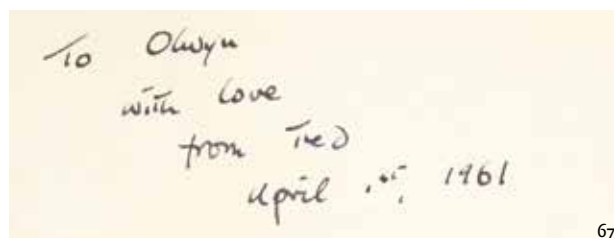 To Olwyn
with love
from Ted
April 1961
67